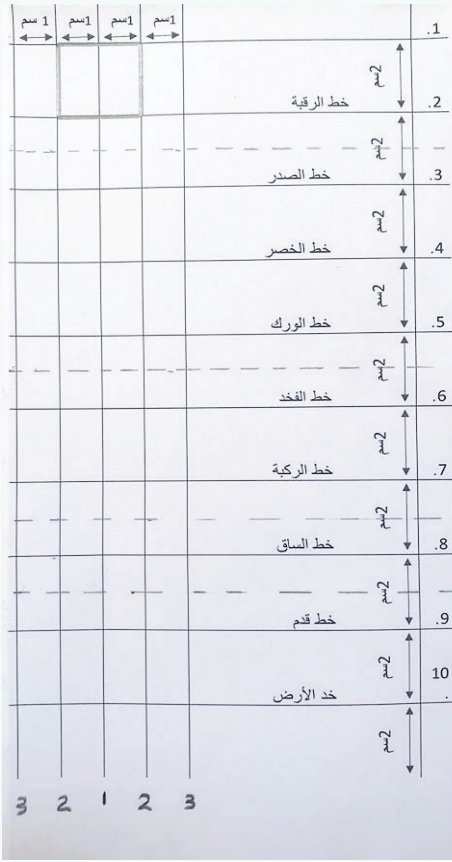 1 سم 1سم 1سم 1سم
.1
2سم
خط الرقبة .2
2سم
خط الصدر .3
2سم
خط الخصر .4
2سم
خط الورك .5
2سم
خط الفخد .6
2سم
خط الركبة .7
2سم
خط الساق .8
2سم
خط قدم .9
2سم
خد الأرض 10
.
2سم
3 2 1 2 3